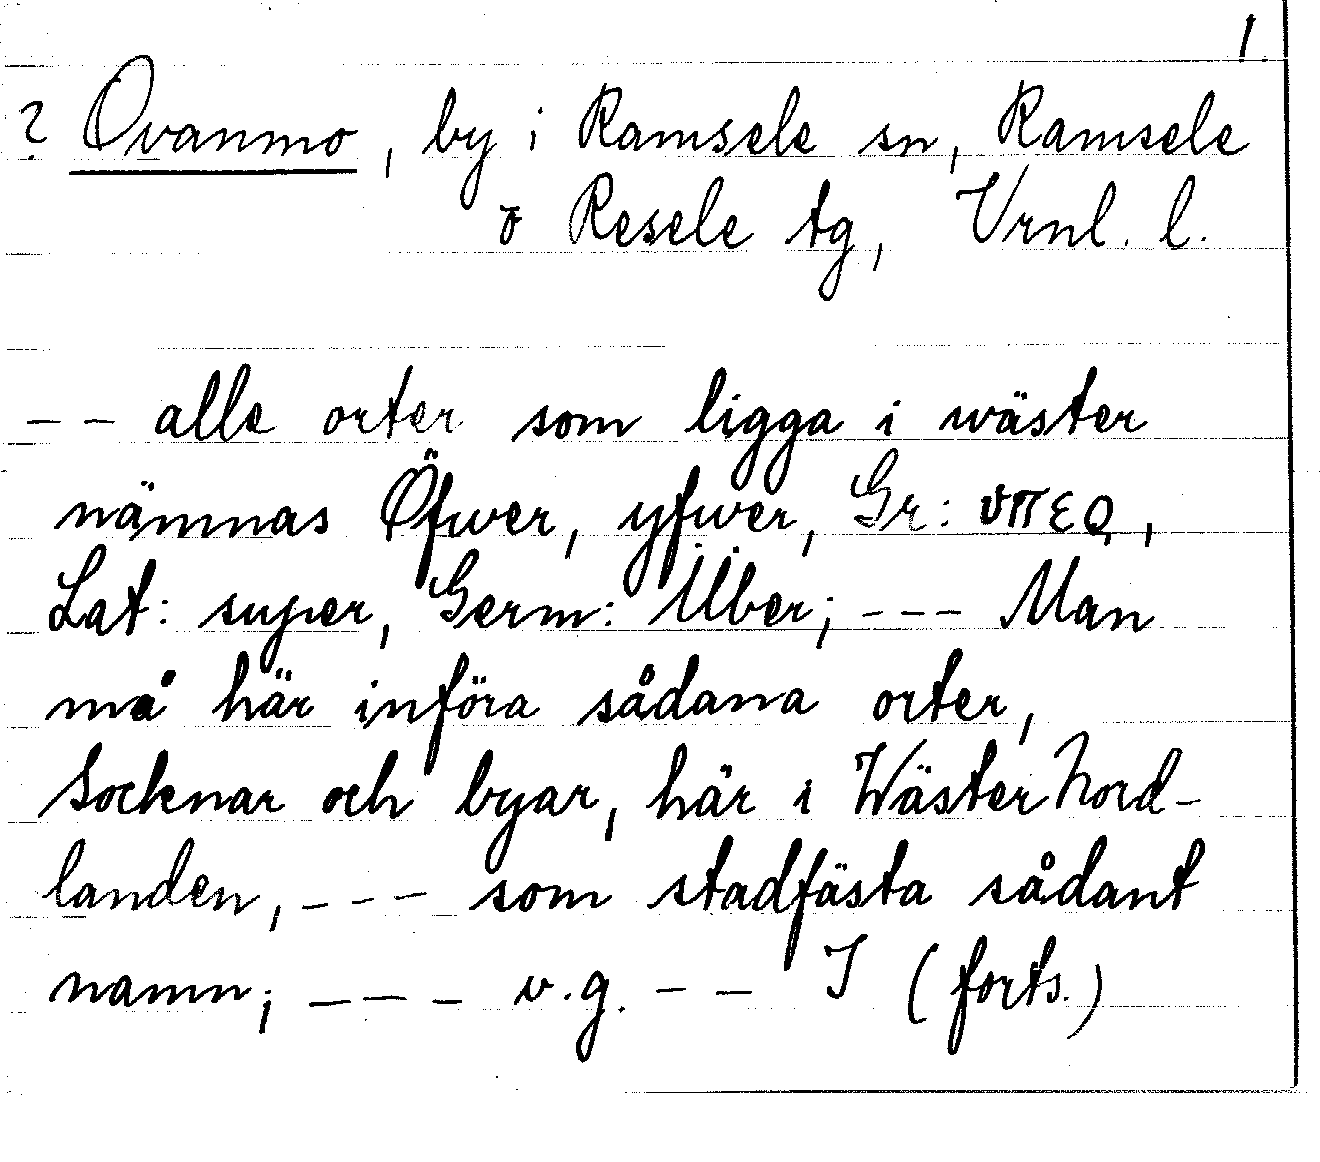 1.
? Ovanmo, by i Ramsele sn, Ramsele
o Resele tg, Vrnl. l.
-- alle orter som ligga i wäster
nämnas Öfwer, yfwer, Gr: υπερ,
Lat: super, Germ: Über; --- Man
må här införa sådana orter,
Socknar och byar, här i WästerNord-
landen, --- som stadfästa sådant
namn; --- v.g. -- I (forts.)